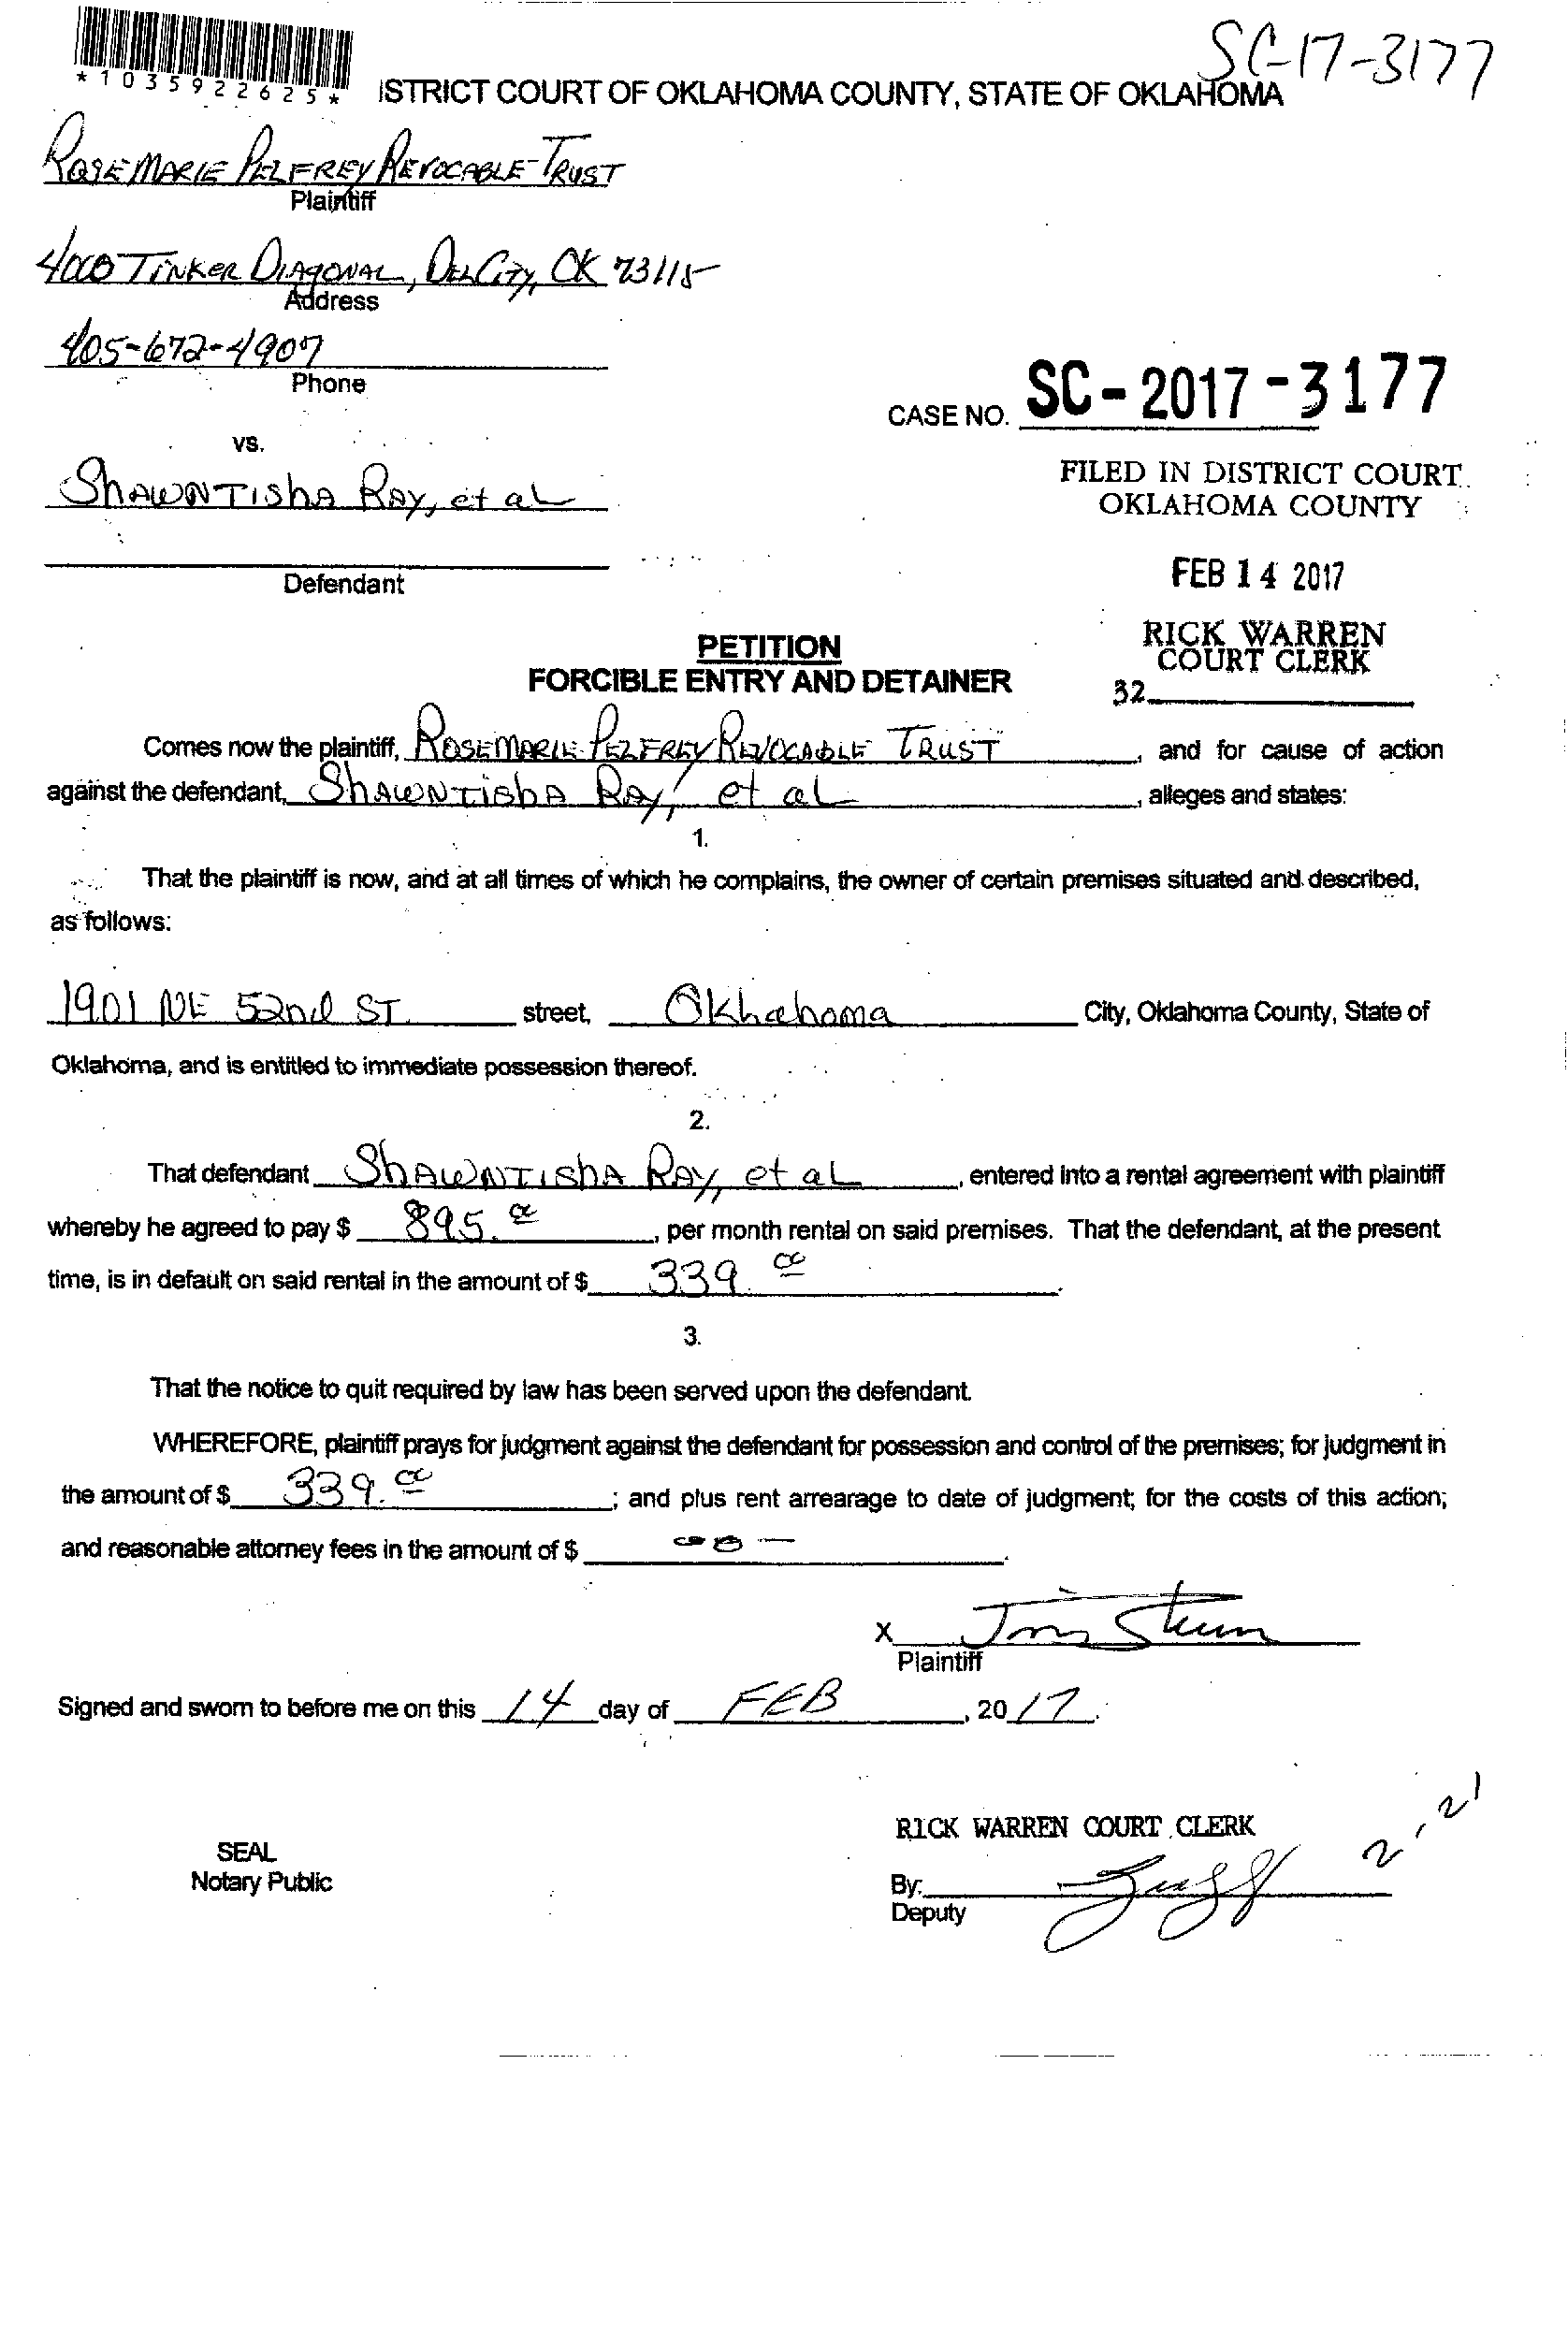 SC-17-3177
*1035922625*
ISTRICT COURT OF OKLAHOMA COUNTY, STATE OF OKLAHOMA
ROSEMARIE PELFREY REVOCABLE TRUST
Plaintiff
4000 TINKER DIAGONAL, DEL CITY, OK 73115
Address
405-672-4907
Phone
CASE NO. SC-2017-3177
vs.
FILED IN DISTRICT COURT
OKLAHOMA COUNTY
SHAWNTISHA RAY, et al
FEB 14 2017
Defendant
RICK WARREN
COURT CLERK
32
PETITION
FORCIBLE ENTRY AND DETAINER
Comes now the plaintiff, ROSEMARIE PELFREY REVOCABLE TRUST, and for cause of action
against the defendant, SHAWNTISHA RAY, et al, alleges and states:
1.
That the plaintiff is now, and at all times of which he complains, the owner of certain premises situated and described,
as follows:
1901 NE 52nd ST. street, Oklahoma City, Oklahoma County, State of
Oklahoma, and is entitled to immediate possession thereof.
2.
That defendant SHAWNTISHA RAY, et al, entered into a rental agreement with plaintiff
whereby he agreed to pay $ 895.00, per month rental on said premises. That the defendant, at the present
time, is in default on said rental in the amount of $ 339.00.
3.
That the notice to quit required by law has been served upon the defendant.
WHEREFORE, plaintiff prays for judgment against the defendant for possession and control of the premises; for judgment in
the amount of $ 339.00; and plus rent arrearage to date of judgment; for the costs of this action;
and reasonable attorney fees in the amount of $ -0-.
X
Plaintiff
Signed and sworn to before me on this 14 day of FEB, 2017.
2-21
RICK WARREN COURT CLERK
SEAL
Notary Public
By:
Deputy